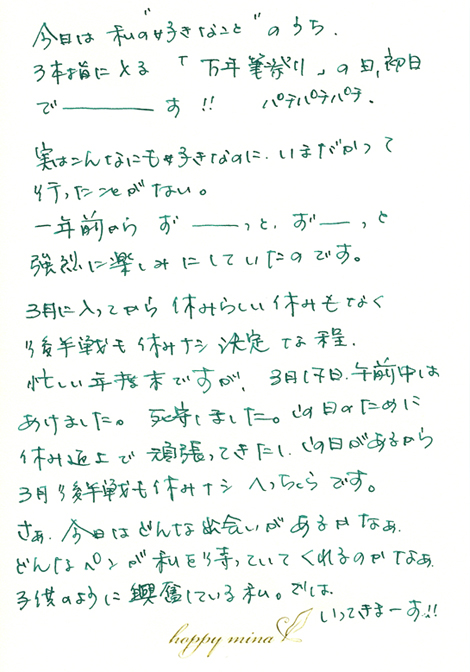 今日は 私の"好きなこと"のうち、
3本指に入る 「万年筆祭り」の日、初日
で―――す!! パチパチパチパチ、
実はこんなにも好きなのに、いまだかつて
行ったことがない。
一年前から ず――っと、ず―っと
強烈に楽しみにしていたのです。
3月に入ってから 休みらしい休みもなく
後半戦も休みナシ 決定な程、
忙しい年度末ですが、3月17日、午前中は
あけました。死守しました。この日のために
休み返上で 頑張ってきたし、この日があるから
3月後半戦も休みナシ へっちゃらです。
さぁ、今日はどんな出会いがあるかなぁ、
どんなペンが私を待っていてくれるのかなぁ、
子供のように興奮している私。では、
いってきまーす!!
happy mina